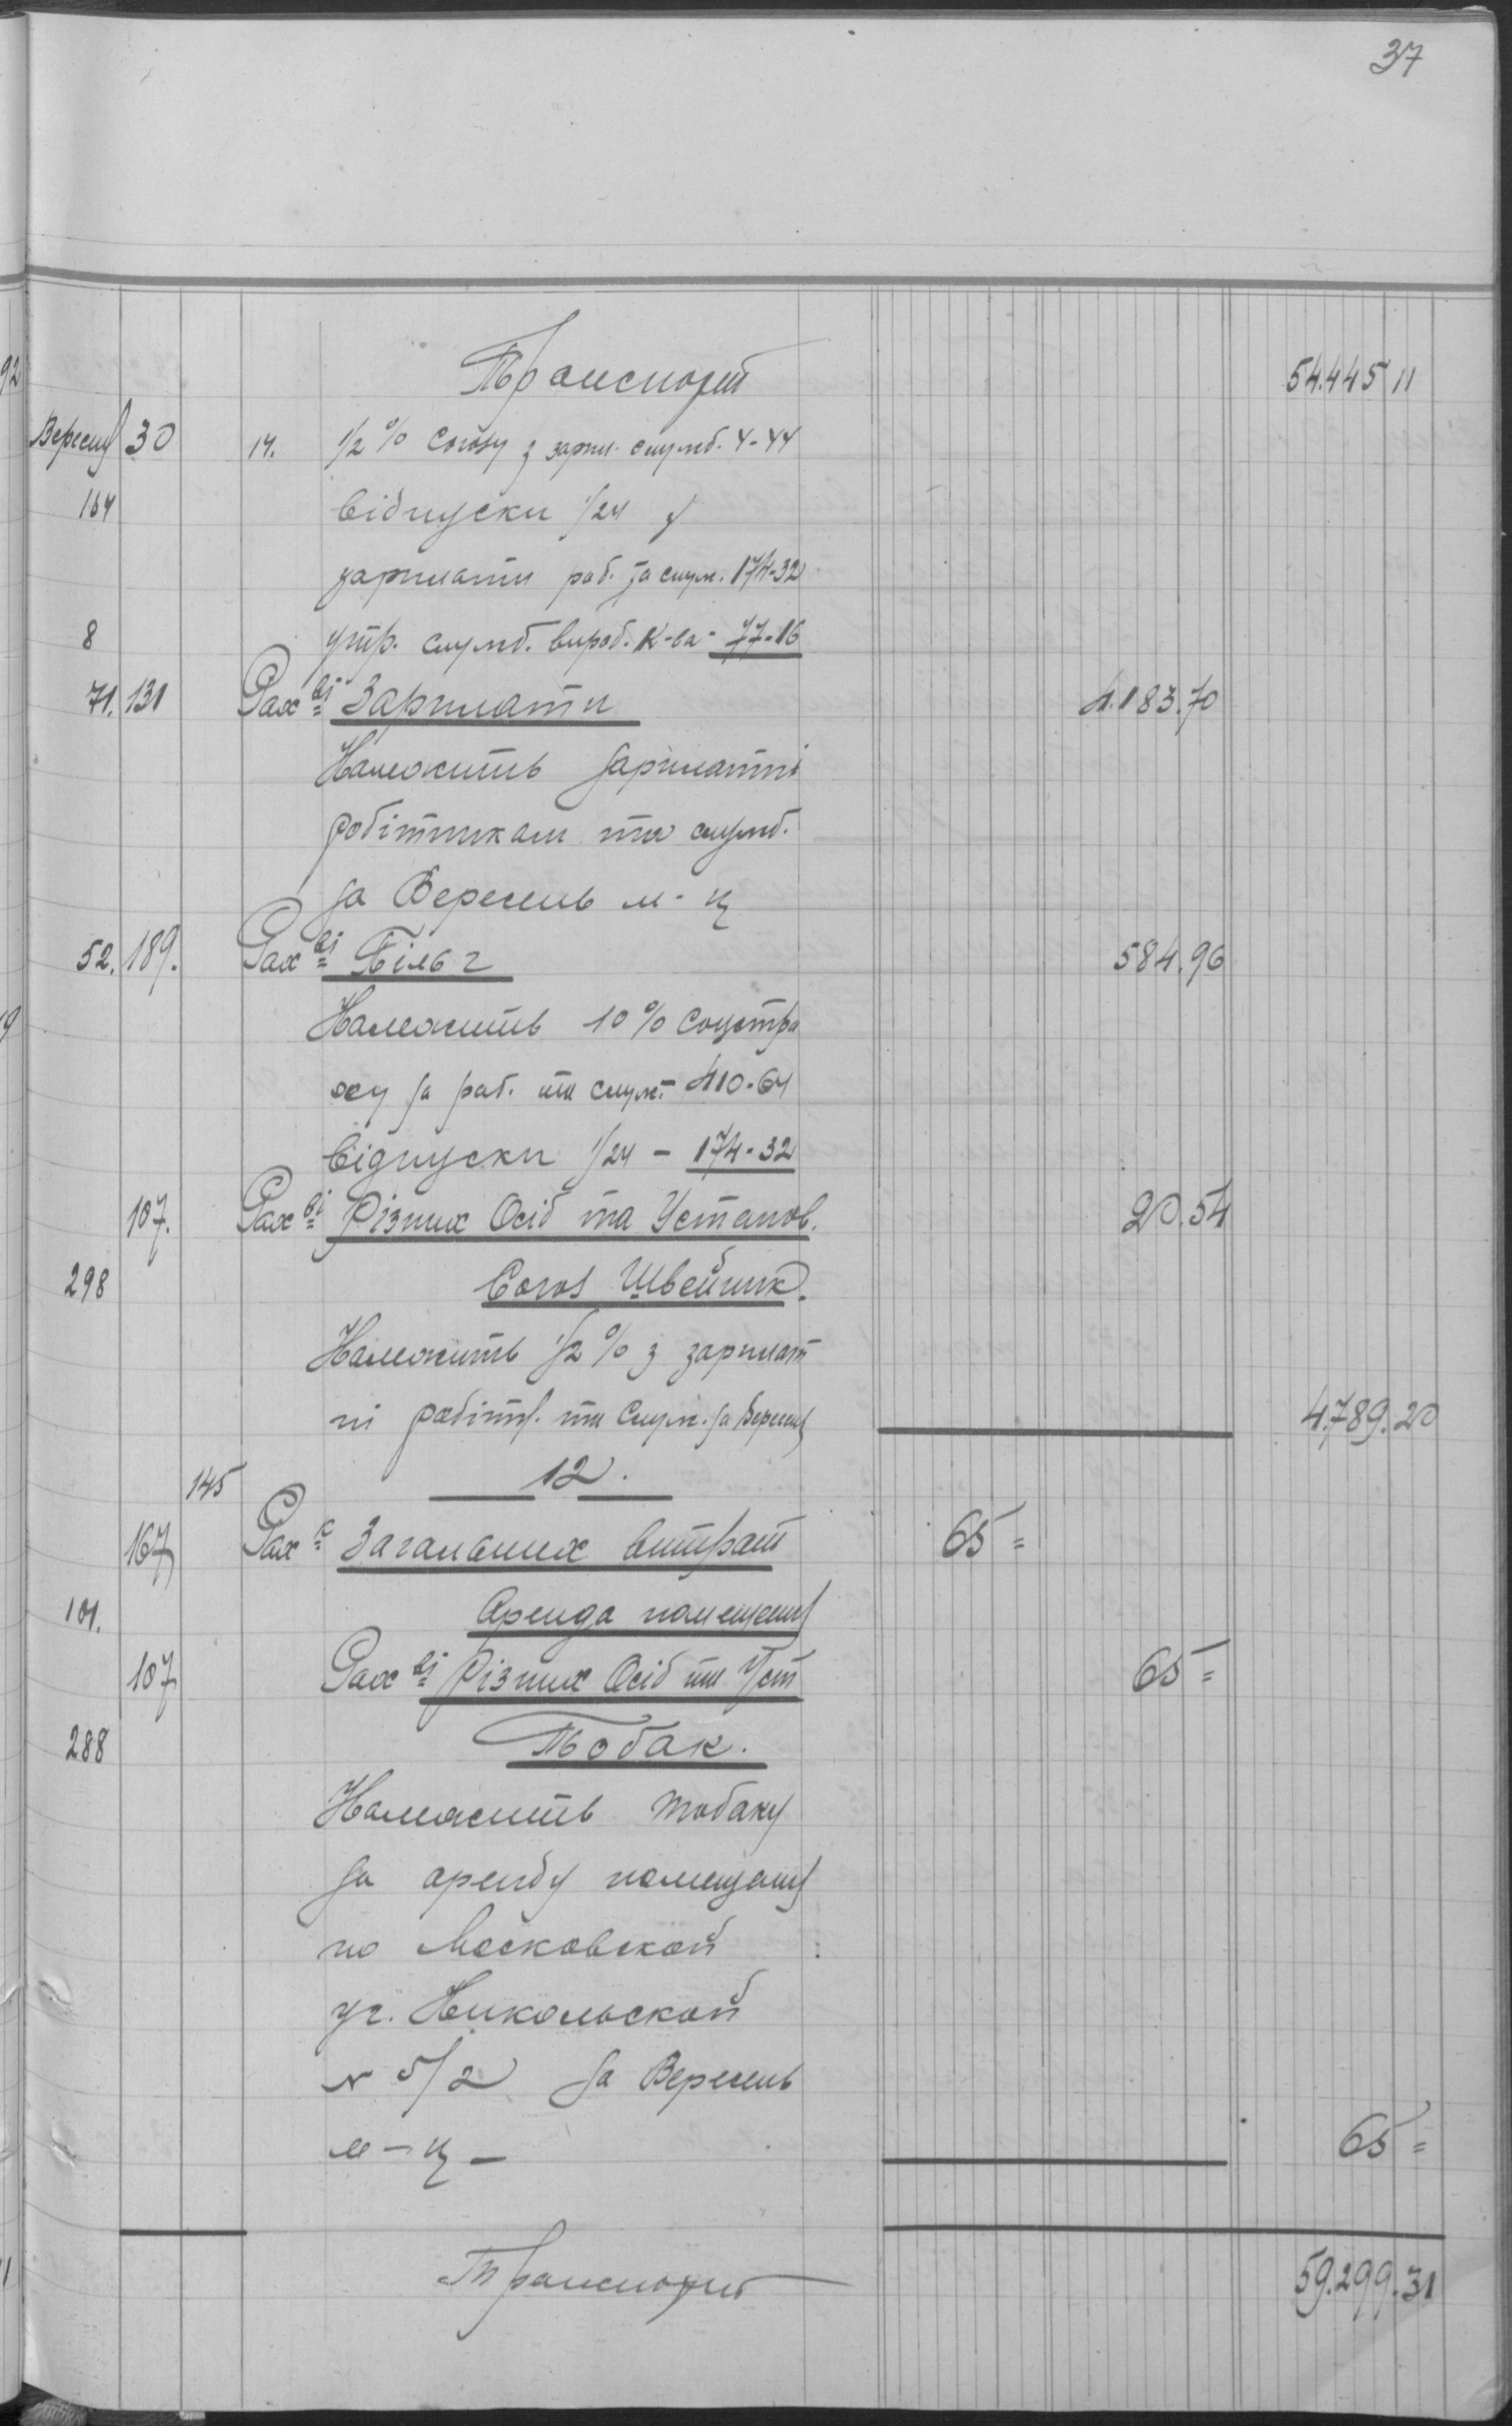 37
Транспорт 54.445 11
Вересня 30 14. 1/2 % Союзу з зарпл. служб. 4-44
164 відпуски 1/24 з
зарплати роб. та служ. 174-32
8 утр. служб. вироб. К-ва - 77-16
71. 131 Рах ві Зарплати 4.183.70
Належить зарплатні
робітникам та служб.
за Вересень м-ц
52. 189. Рах ві Пільг 584.96
Належить 10 % соцстра
ху за раб. та служ. 410-64
відпуски 1/24 - 174-32
107. Рах ві Різних Осіб та Установ. 20.54
298 Союз Швейник.
Належить 1/2 % з зарплат
ні робітн. та служ. за Вересня 4.789.20
145 12.
167 Рах к Загальних витрат 65=
101. Аренда помещения
107 Рах ві Різних Осіб та Уст 65=
288 Тобак.
Належить тобаку
за аренду помещения
по Московской
уг. Никольской
N 5/2 за Вересень
м-ц - 65=
Транспорт 59.299.31